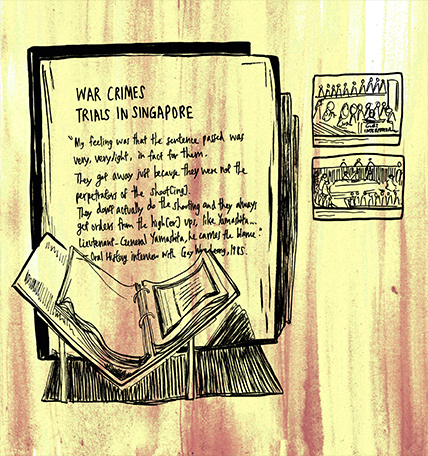 WAR CRIMES
TRIALS IN SINGAPORE
"My feeling was that the sentence passed was
very, very light, in fact for them.
They got away just because they were not the
perpetrators of the shoot[ing].
They don't actually do the shooting and they always
get orders from the high[er] ups, like Yamashita...
Lieutenant-General Yamashita, he carries the blame."
Oral History interview with Gay 1985.